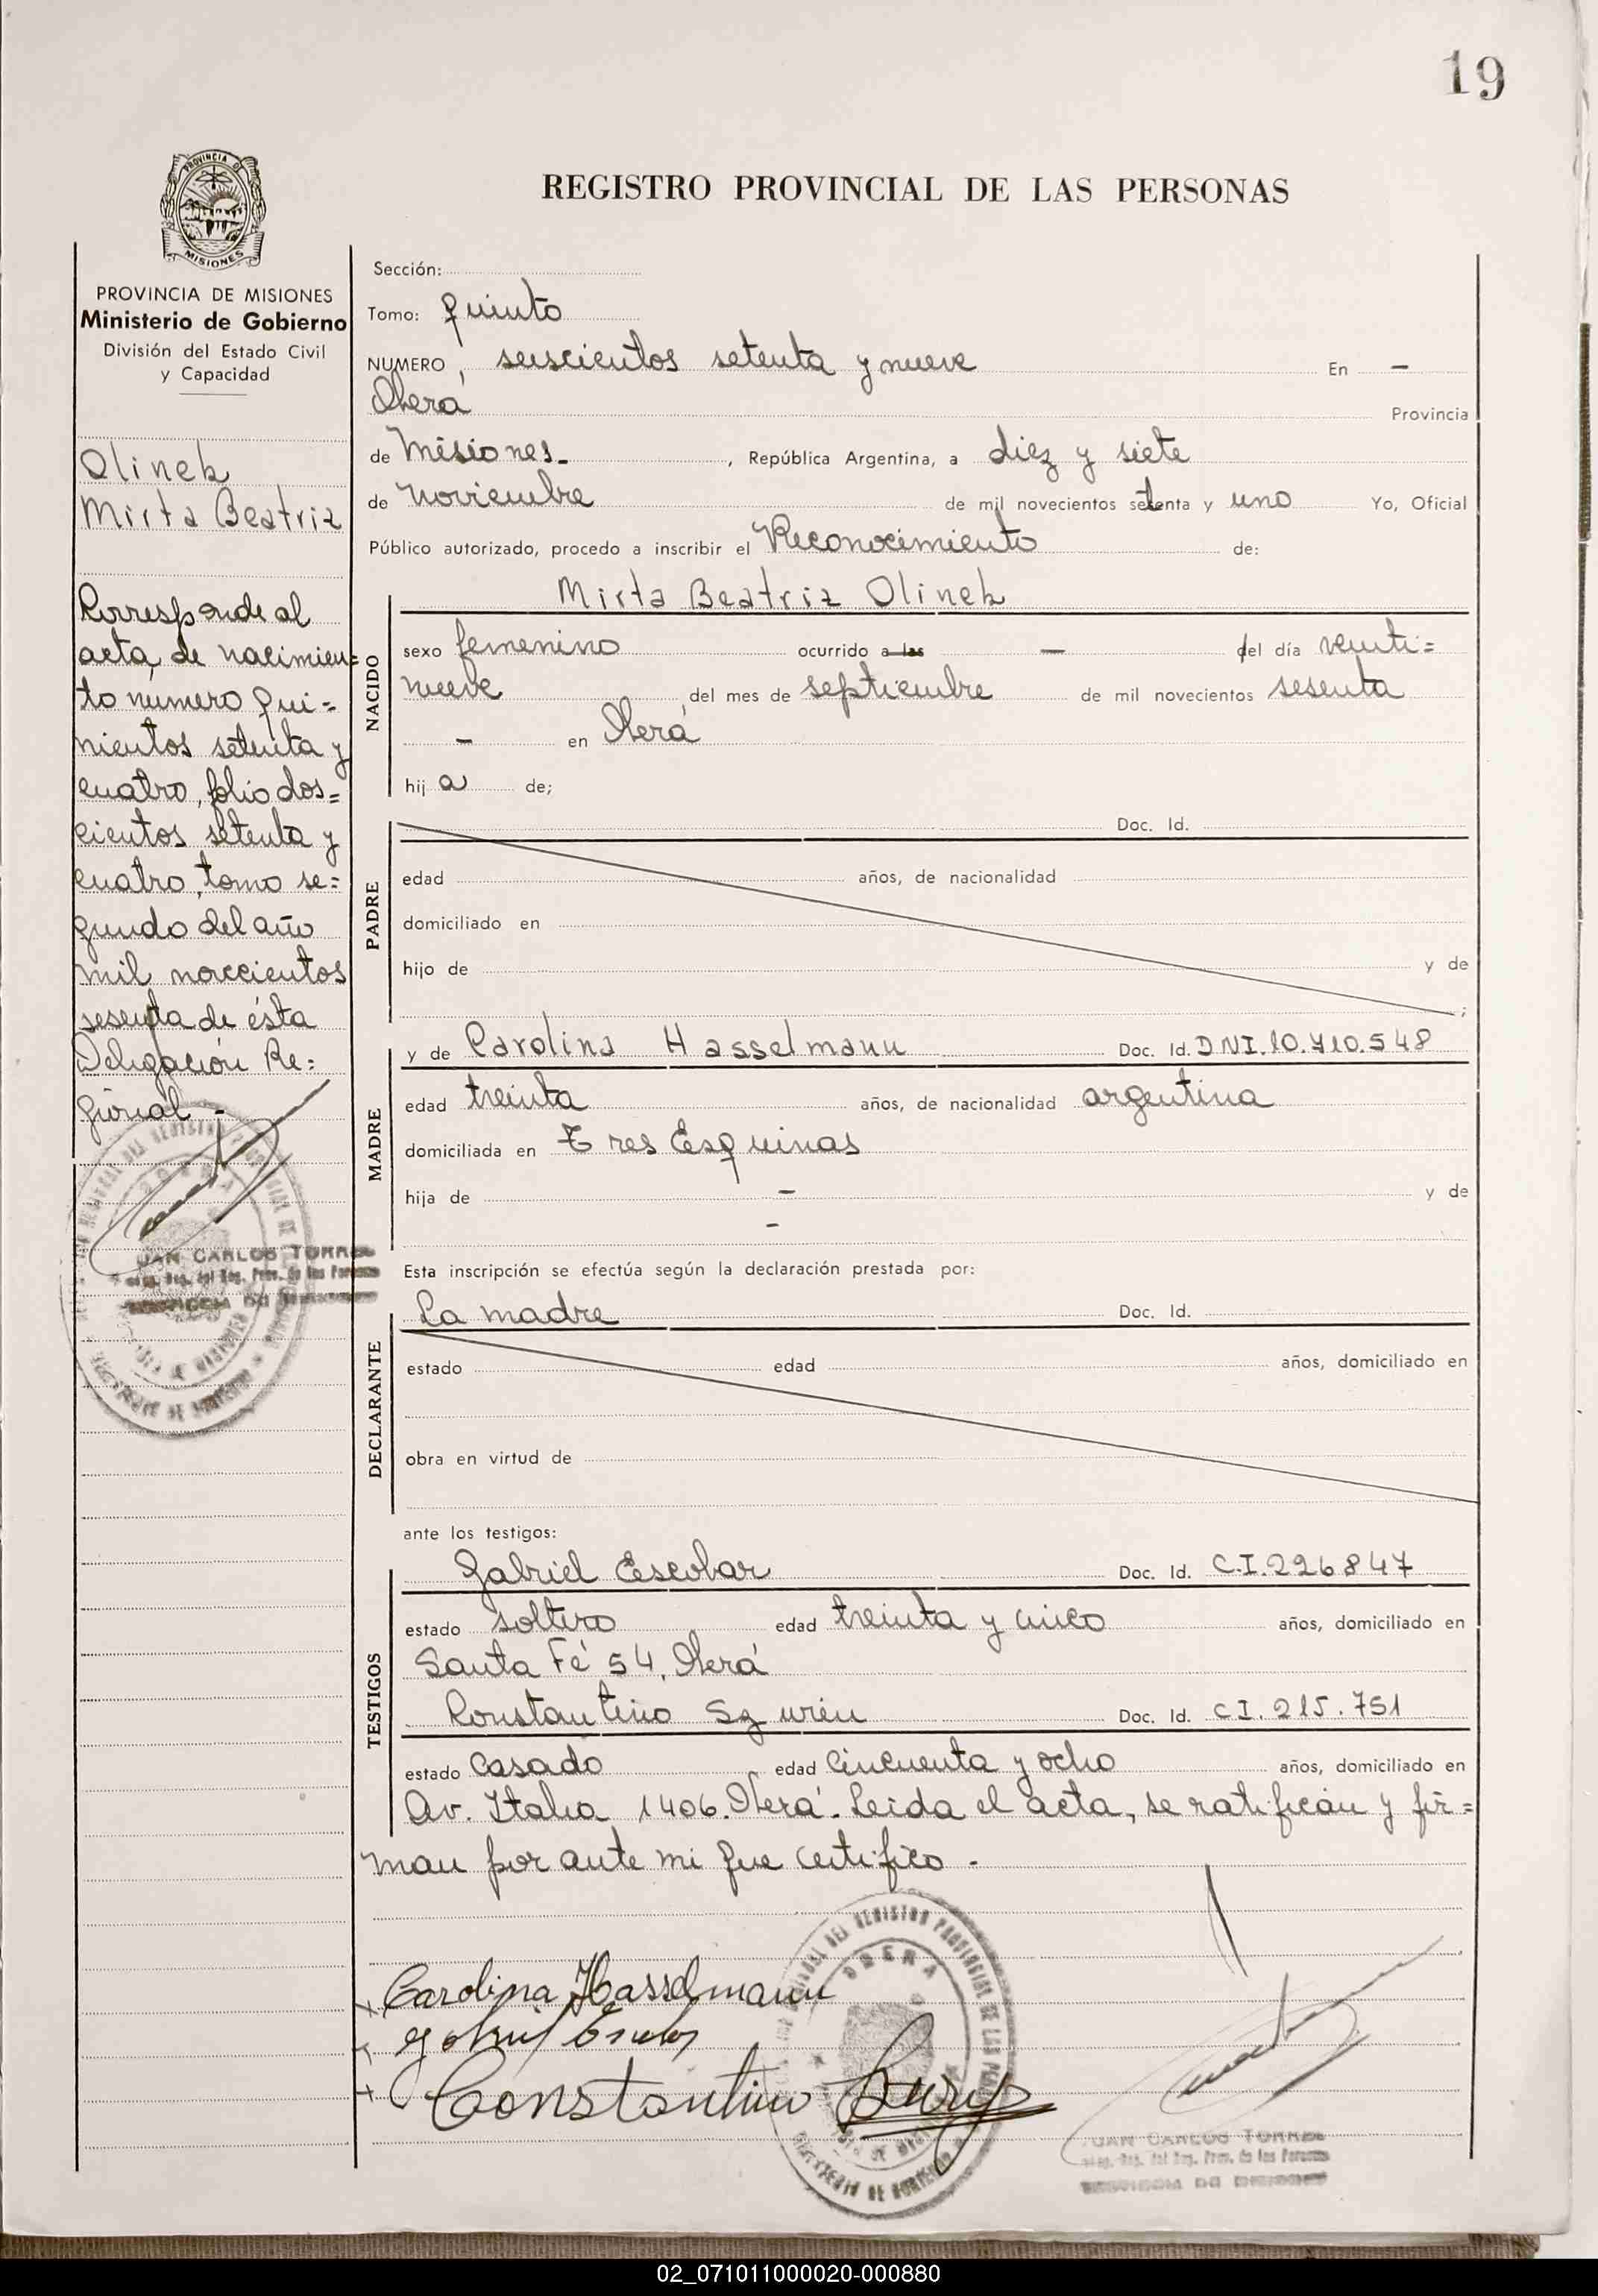 19
REGISTRO PROVINCIAL DE LAS PERSONAS
PROVINCIA DE
MISIONES
PROVINCIA DE MISIONES
Ministerio de Gobierno
División del Estado Civil
y Capacidad
Olinek
Mirta Beatriz
Corresponde al
acta de nacimien=
to número qui=
nientos setenta y
cuatro, folio dos=
cientos setenta y
cuatro, tomo se=
gundo del año
mil novecientos
sesenta de ésta
Delegación Re=
gional.-
JUAN CARLOS TORRES
Sección:
Tomo: quinto
NUMERO, seiscientos setenta y nueve En -
Oberá Provincia
de Misiones.- , República Argentina, a diez y siete
de noviembre de mil novecientos setenta y uno Yo, Oficial
Público autorizado, procedo a inscribir el Reconocimiento de:
NACIDO
Mirta Beatriz Olinek
sexo femenino ocurrido a las - del día veinti=
nueve del mes de septiembre de mil novecientos sesenta
- en Oberá
hij a de;
PADRE
Doc. Id.
edad años, de nacionalidad
domiciliado en
hijo de y de
;
MADRE
y de Carolina Hasselmann Doc. Id. DNI.10.710.548
edad treinta años, de nacionalidad argentina
domiciliada en Tres Esquinas
hija de - y de
-
Esta inscripción se efectúa según la declaración prestada por:
DECLARANTE
La madre Doc. Id.
estado edad años, domiciliado en
obra en virtud de
ante los testigos:
TESTIGOS
Gabriel Escobar Doc. Id. C.I.226847
estado soltero edad treinta y cinco años, domiciliado en
Santa Fé 54, Oberá
Constantino Doc. Id. C I. 215.751
estado casado edad cincuenta y ocho años, domiciliado en
Av. Italia 1406. Oberá.- Leida el acta, se ratifican y fir=
man por ante mi que certifico -
Carolina Hasselmann
Constantino
OBERA
JUAN CARLOS TORRES
02_071011000020-000880